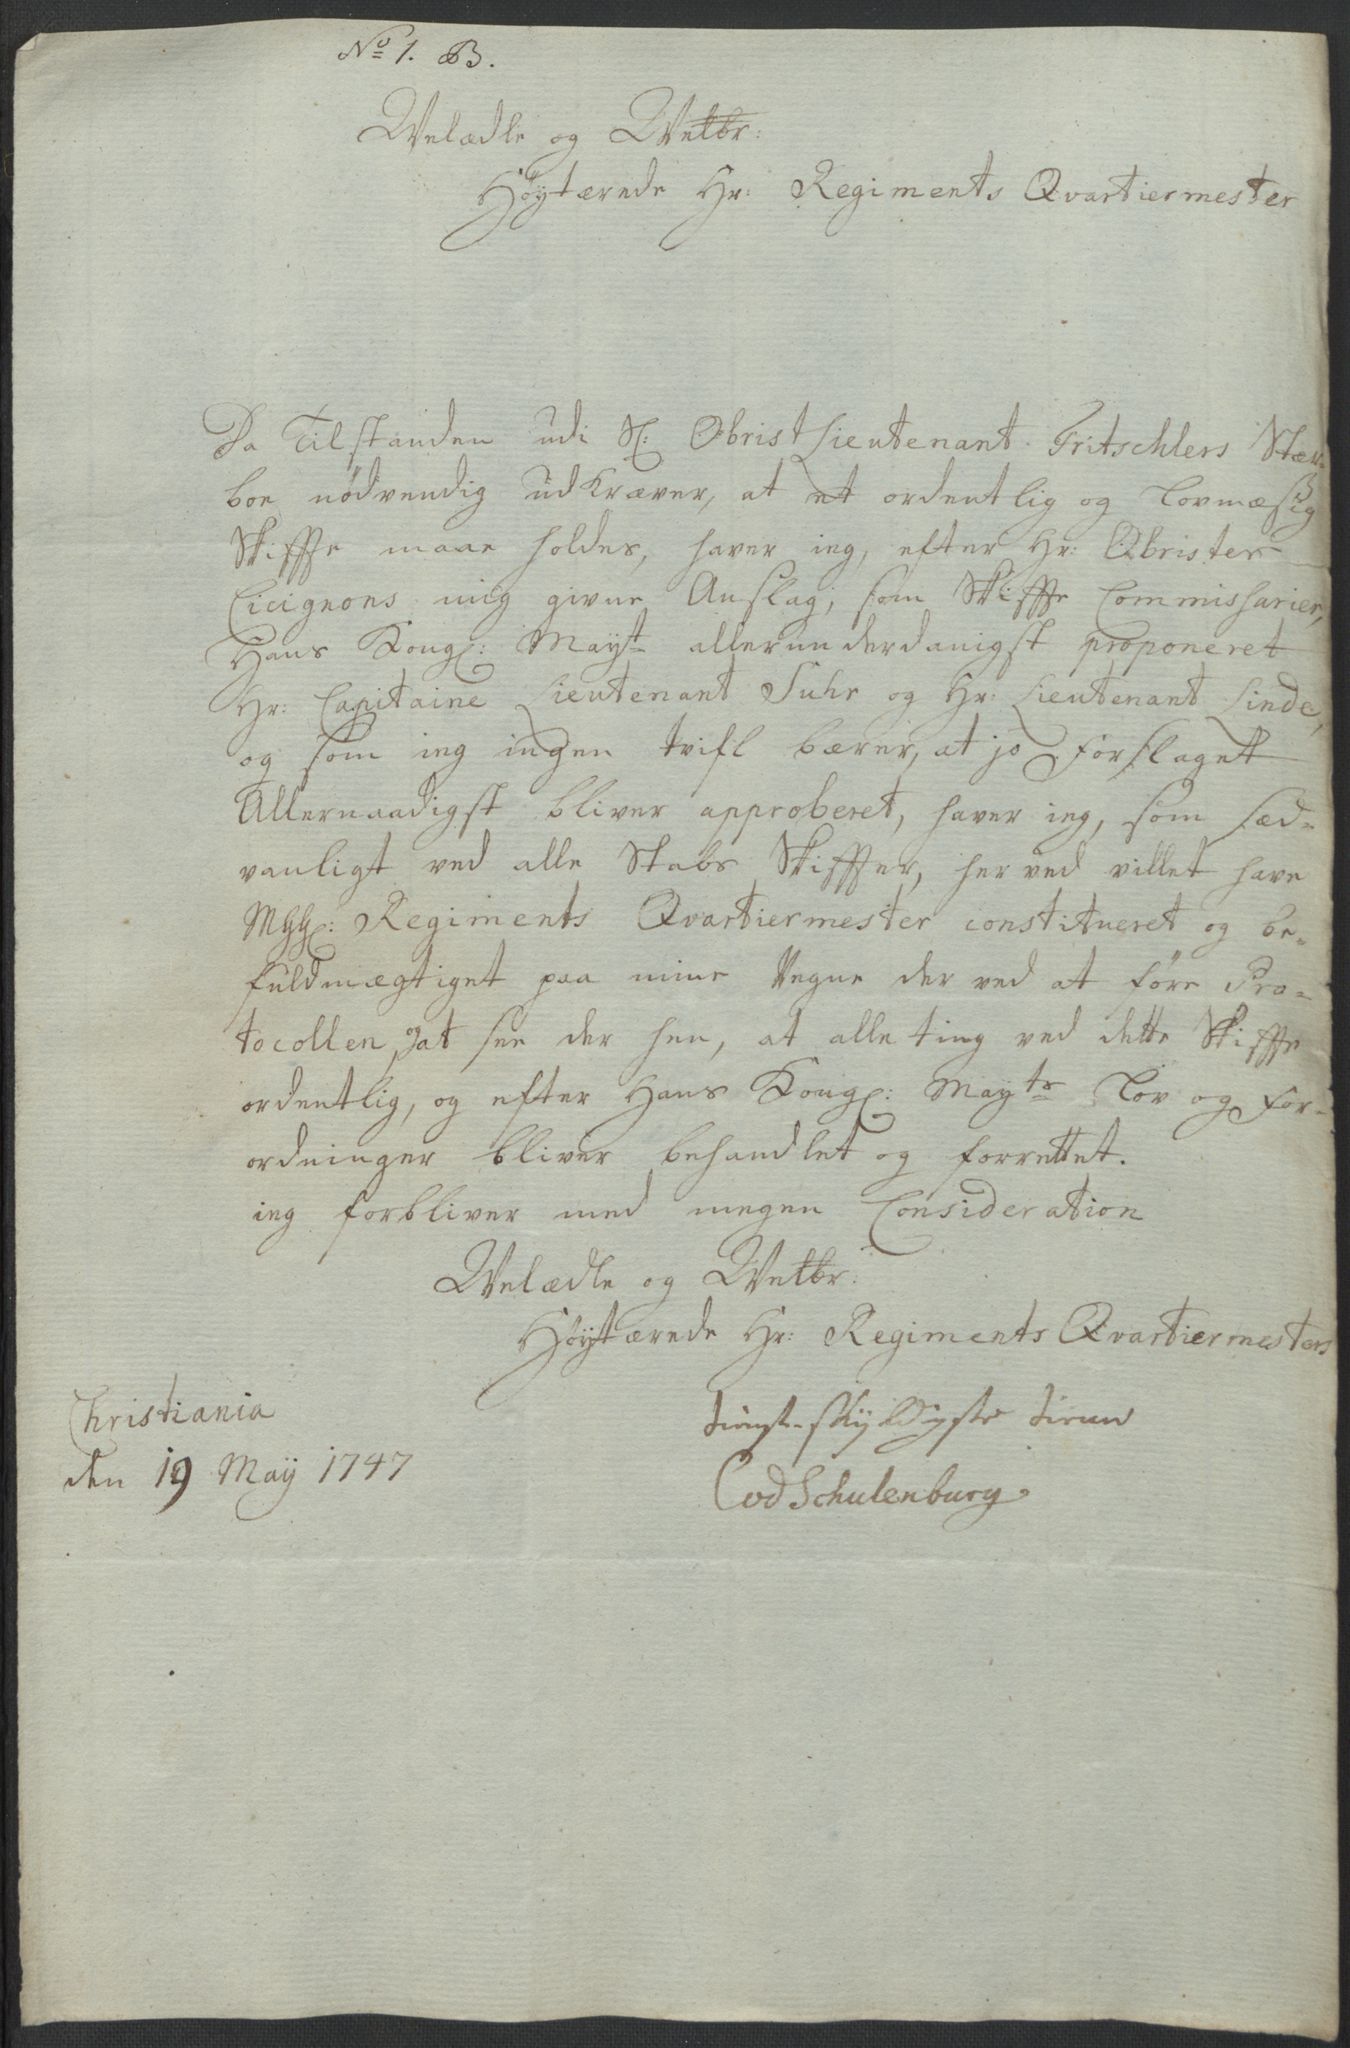 No 1. B.
Velædle og Velbr:
Höÿtærede Hr: Regiments Qvartiermester
Da Tilstanden udi Sl: Obrist Lieutenant Fritschlers Stær-
boe nödvendig udkræver, at et ordentlig og Lovmæsig
Skiffte maae holdes, haver ieg, efter Hr: Obrister
Cicignons mig givne Anslag, som Skiffte Commissarier,
Hans Kongl: Mayst allerunderdanigst proponeret
Hr: Capitaine Lieutenant Suhr og Hr: Lieutenant Linde,
og som ieg ingen tvifl bærer, at jo Forslaget
Allernaadigst bliver approberet, haver ieg, som sæd-
vanligt ved alle Stabs Skiffter, herved villet have
MHH: Regiments Qvartiermester constitueret og be-
fuldmægtiget paa mine Vegne der ved at före Pro-
tocollen, og at see der hen, at alle ting ved dette Skiffte
ordentlig, og efter Hans Kongl: Mayts Lov og For-
ordninger bliver behandlet og forrettet.
ieg forbliver med megen Consideration
Velædle og Velbr:
Höÿtærede Hr: Regiments Qvartiermesters
Christiania
den 19 Maÿ 1747
tienst-skÿldigste tiener
CvdSchulenburg